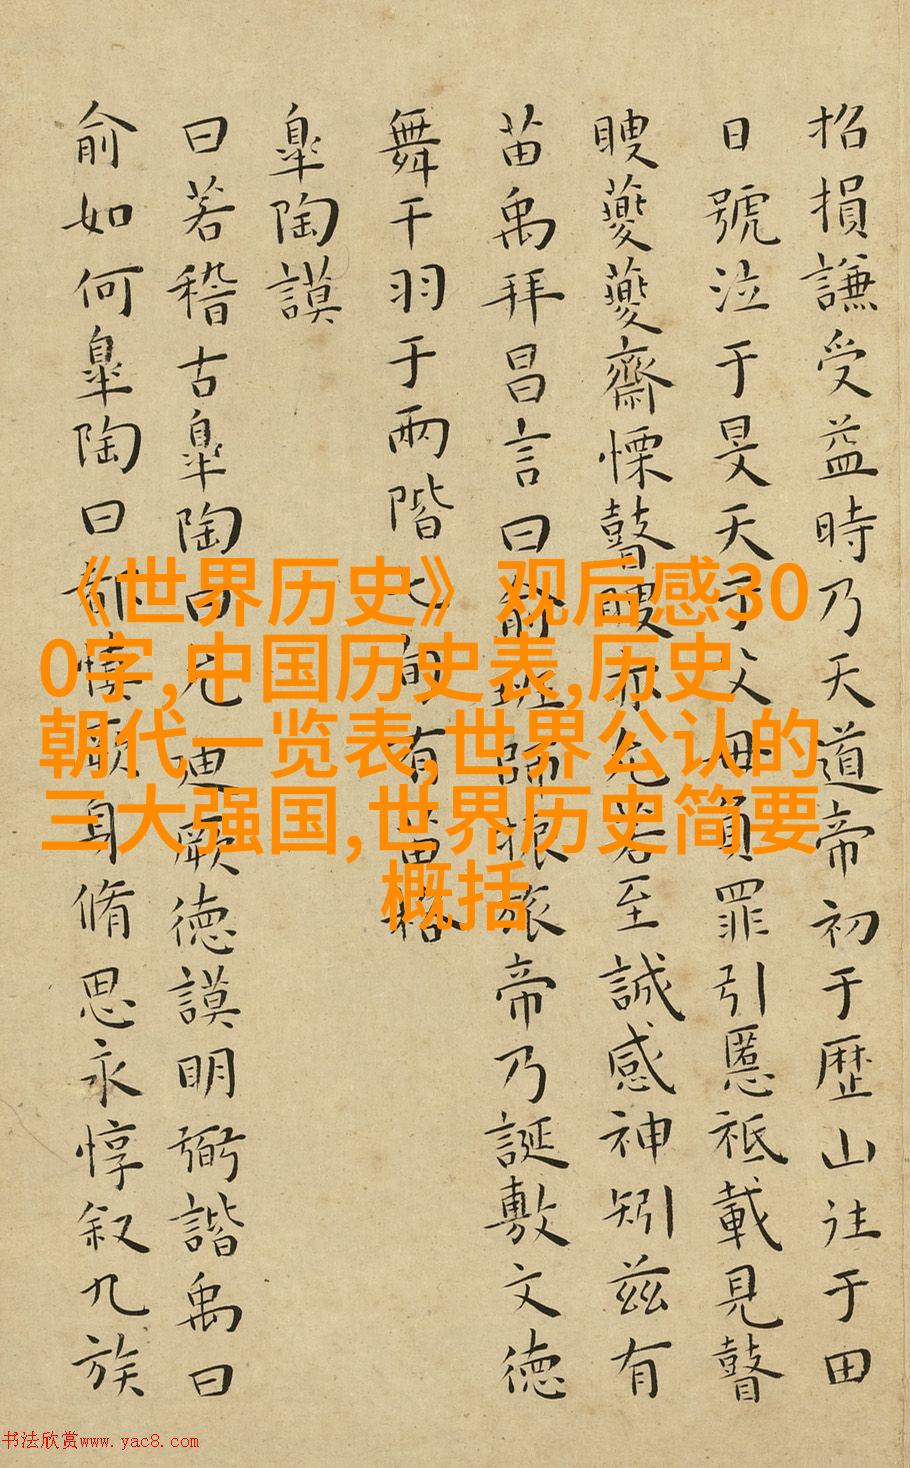 招損謙受益時乃天道帝初于歷山往于田
日號泣于旻天于父母負罪引慝祗載見瞽
瞍夔夔齋慄瞽瞍亦允若至誠感神矧茲有
苗禹拜昌言曰俞班師振旅帝乃誕敷文德
舞干羽于兩階七旬有苗格
皐陶謨
曰若稽古皐陶曰允迪厥德謨明弼諧禹曰
俞如何皐陶曰都慎厥身脩思永惇叙九族
《世界历史》观后感30
0字,中国历史表,历史
朝代一览表,世界公认的
三大强国,世界历史简要
概括
书法欣赏www.yac8.com